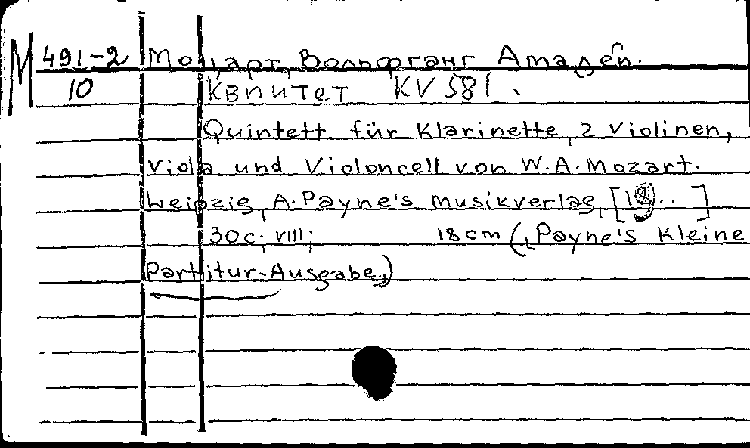 M 491-2 Моцарт, Вольфганг Амадей.
10 Квинтет KV 581.
Quintett für Klarinette, 2 Violinen,
Viola und Violoncell von W. A. Mozart.
Leipzig, A. Payne's Musikverlag, [19..]
30 с; VIII; 18 cm („Payne's Kleine
Partitur-Ausgabe„)